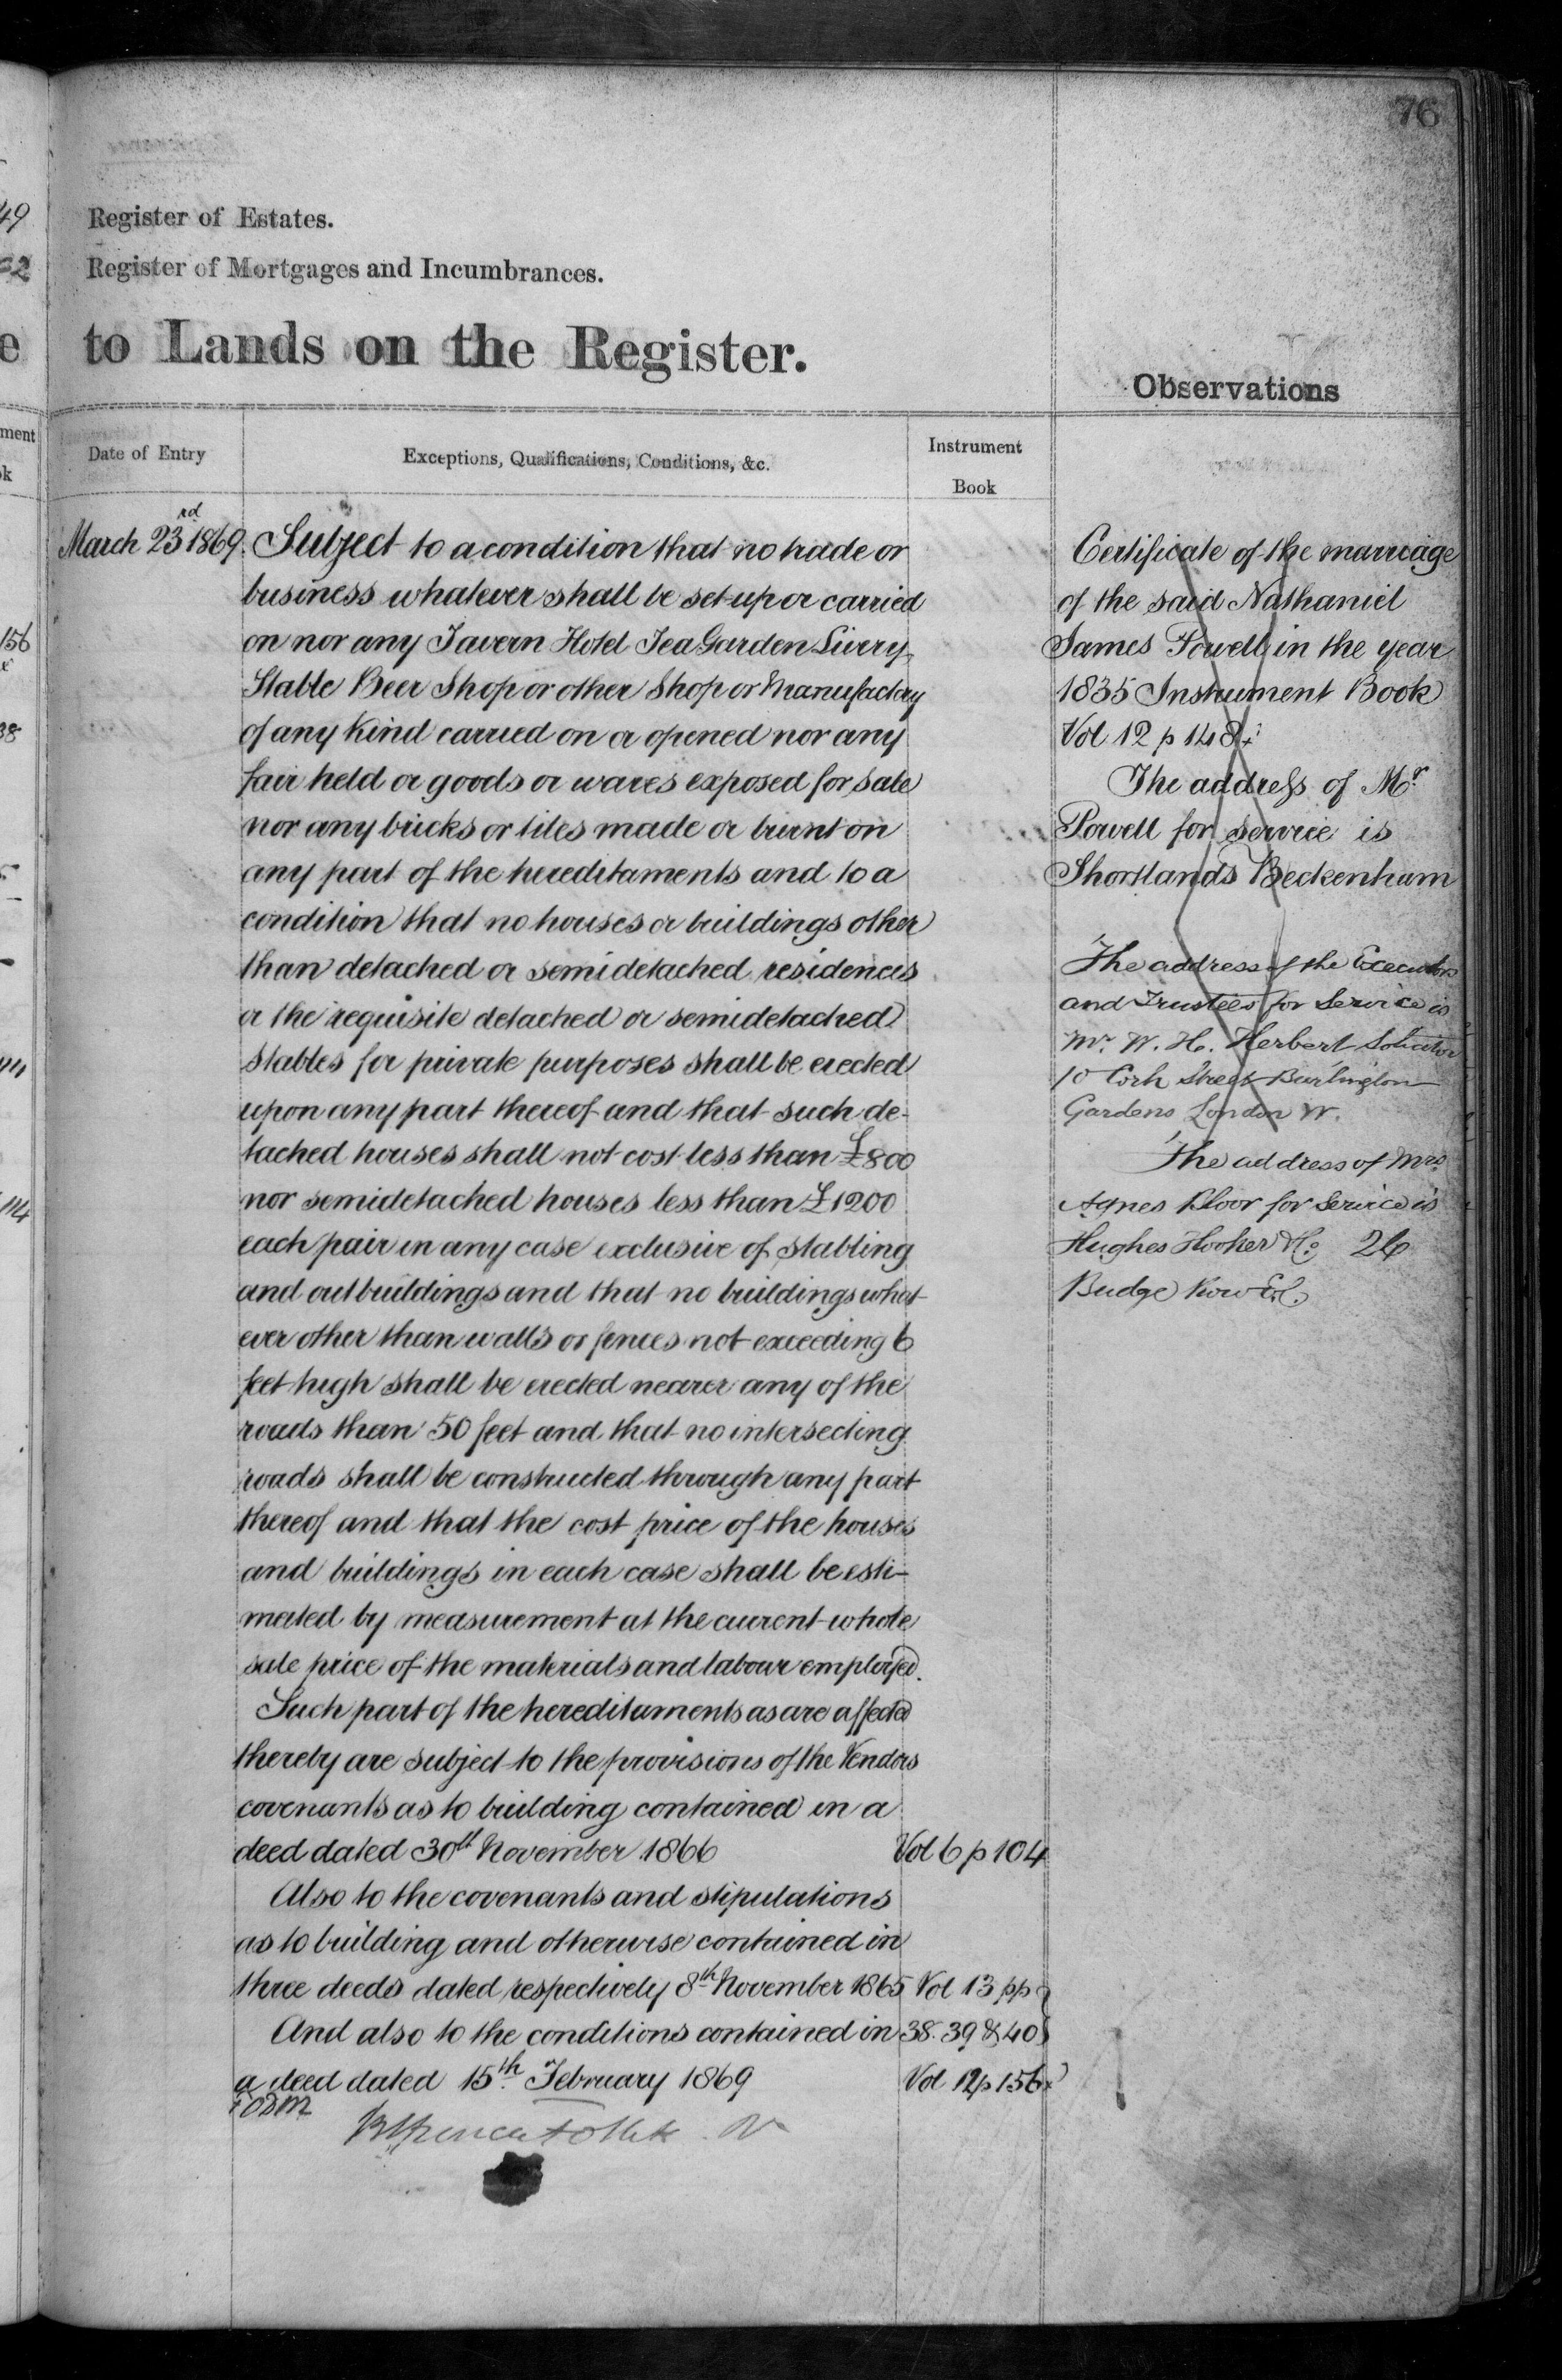 76
Register of Estates.
Register of Mortgages and Incumbrances.
to Lands on the Register.
Observations
Date of Entry
Exceptions, Qualifications, Conditions, &c.
Instrument
Book
March 23rd 1869.
Subject to a condition that no trade or
business whatever shall be set up or carried
on nor any Tavern Hotel Tea Garden Livery
Stable Beer Shop or other Shop or Manufactory
of any kind carried on or opened nor any
fair held or goods or wares exposed for sale
nor any bricks or tiles made or burnt on
any part of the hereditaments and to a
condition that no houses or buildings other
than detached or semidetached residences
or the requisite detached or semidetached
stables for private purposes shall be erected
upon any part thereof and that such de-
tached houses shall not cost less than £800
nor semidetached houses less than £1200
each pair in any case exclusive of stabling
and outbuildings and that no buildings what
ever other than walls or fences not exceeding 6
feet high shall be erected nearer any of the
roads than 50 feet and that no intersecting
roads shall be constructed through any part
thereof and that the cost price of the houses
and buildings in each case shall be esti-
mated by measurement at the current whole
sale price of the materials and labour employed.
Such part of the hereditaments as are affected
thereby are subject to the provisions of the Vendors
covenants as to building contained in a
deed dated 30th November 1866
Vol 6 p 104
Also to the covenants and stipulations
as to building and otherwise contained in
three deeds dated respectively 8th November 1865
Vol 13 pp
And also to the conditions contained in
38. 39 & 40
a deed dated 15th February 1869
Vol 12 p 156
Certificate of the marriage
of the said Nathaniel
James Powell in the year
1835 Instrument Book
Vol 12 p 148
The address of Mr
Powell for service is
Shortlands Beckenham
The address of the Executors
and Trustees for Service is
Mr. W. H. Herbert Solicitor
10 Cork Street Burlington
Gardens London W.
The address of Mrs
Agnes Kloor for Service is
Hughes Hooker & Co 26
Budge Row E.C.